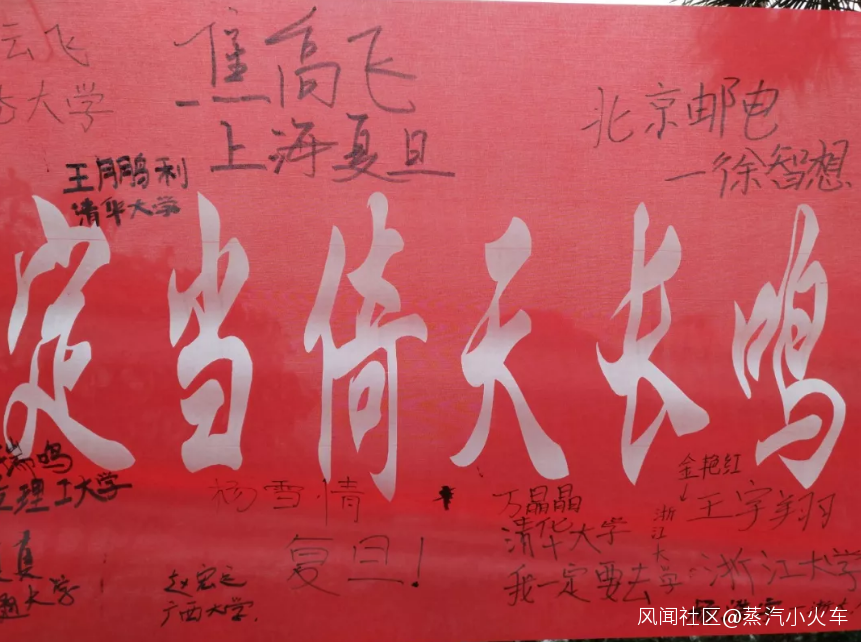 云飞
大学
焦高飞
上海夏旦
北京邮电
一徐智想
王鹏利
清华大学
定当倚天长鸣
瑞鸣
理工大学
杨雪情
复旦！
赵宏运
广西大学.
万晶晶
清华大学
我一定要去
金艳红
浙江大学
王宇翔
浙江大学
真
通大学
风闻社区@蒸汽小火车